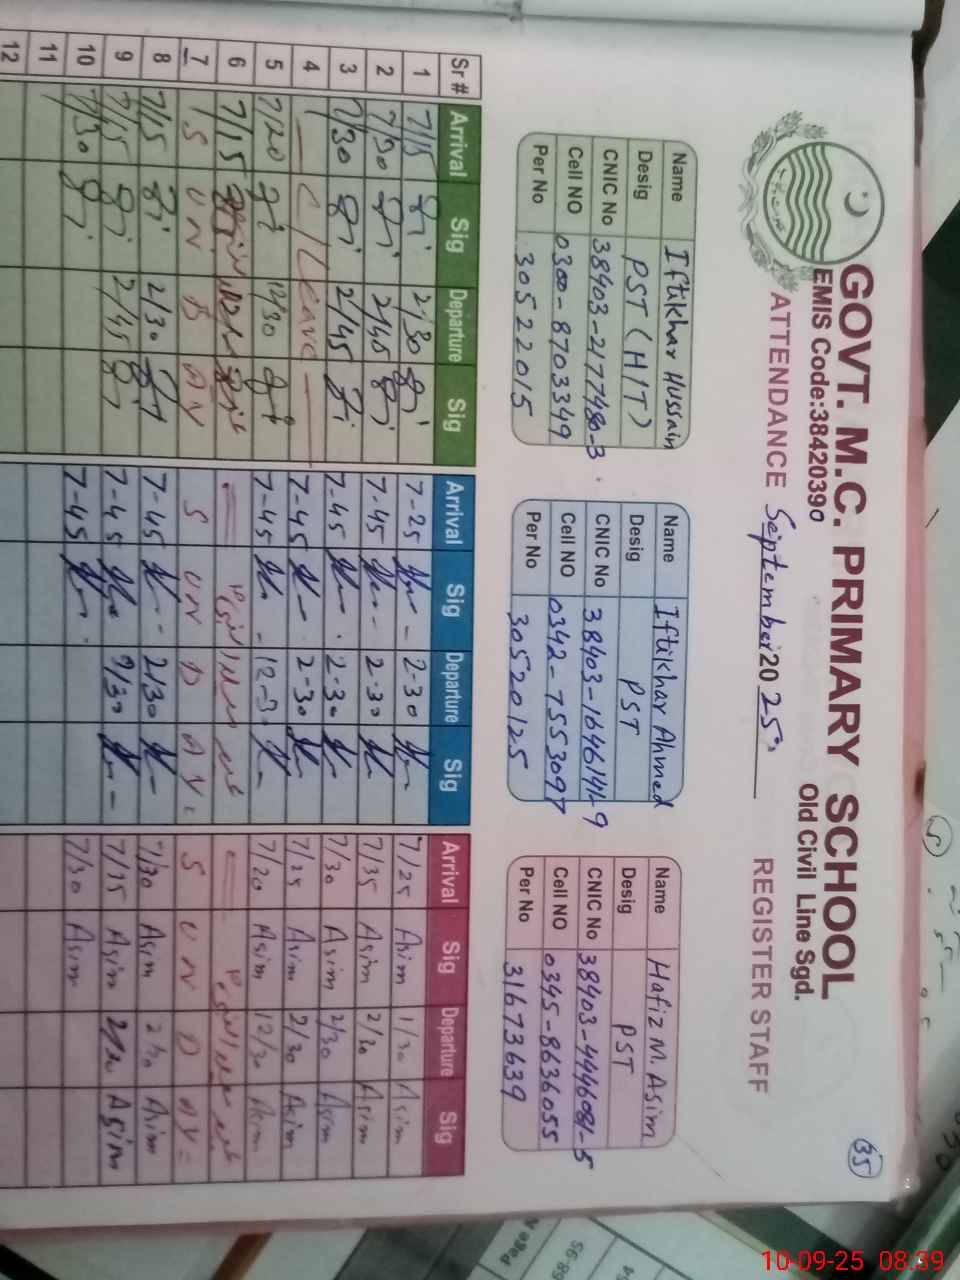 35
GOVT. M.C. PRIMARY SCHOOL
EMIS Code:38420390
Old Civil Line Sgd.
ATTENDANCE September 2025
REGISTER STAFF
Name Iftikhar Hussain
Desig PST (HIT)
CNIC No 38403-2177480-3
Cell NO 0300-8703349
Per No 30522015
Name Iftikhar Ahmed
Desig PST
CNIC No 38403-1646141-9
Cell NO 0342-7553097
Per No 30520125
Name Hafiz M. Asim
Desig PST
CNIC No 38403-4446081-5
Cell NO 0345-8636055
Per No 31673639
Sr# Arrival Sig Departure Sig Arrival Sig Departure Sig Arrival Sig Departure Sig
1 7/15 2/30 7-25 2-30 7/25 Asim 1/30 Asim
2 7/30 2/45 7-45 2-30 7/35 Asim 2/30 Asim
3 7/30 2/45 7-45 2-30 7/30 Asim 2/30 Asim
4 C/Leave 7-45 2-30 7/25 Asim 2/30 Asim
5 7/20 12/30 7-45 12-30 7/20 Asim 12/30 Asim
6 7/15
7 S U N D A Y S U N D A Y S U N D A Y
8 7/15 2/30 7-45 2/30 7/30 Asim 2/30 Asim
9 7/15 2/45 7-45 7/15 Asim Asim
10 7/30 7-45 7/30 Asim
11
12
Page N
68-95
54
10-09-25 08:39